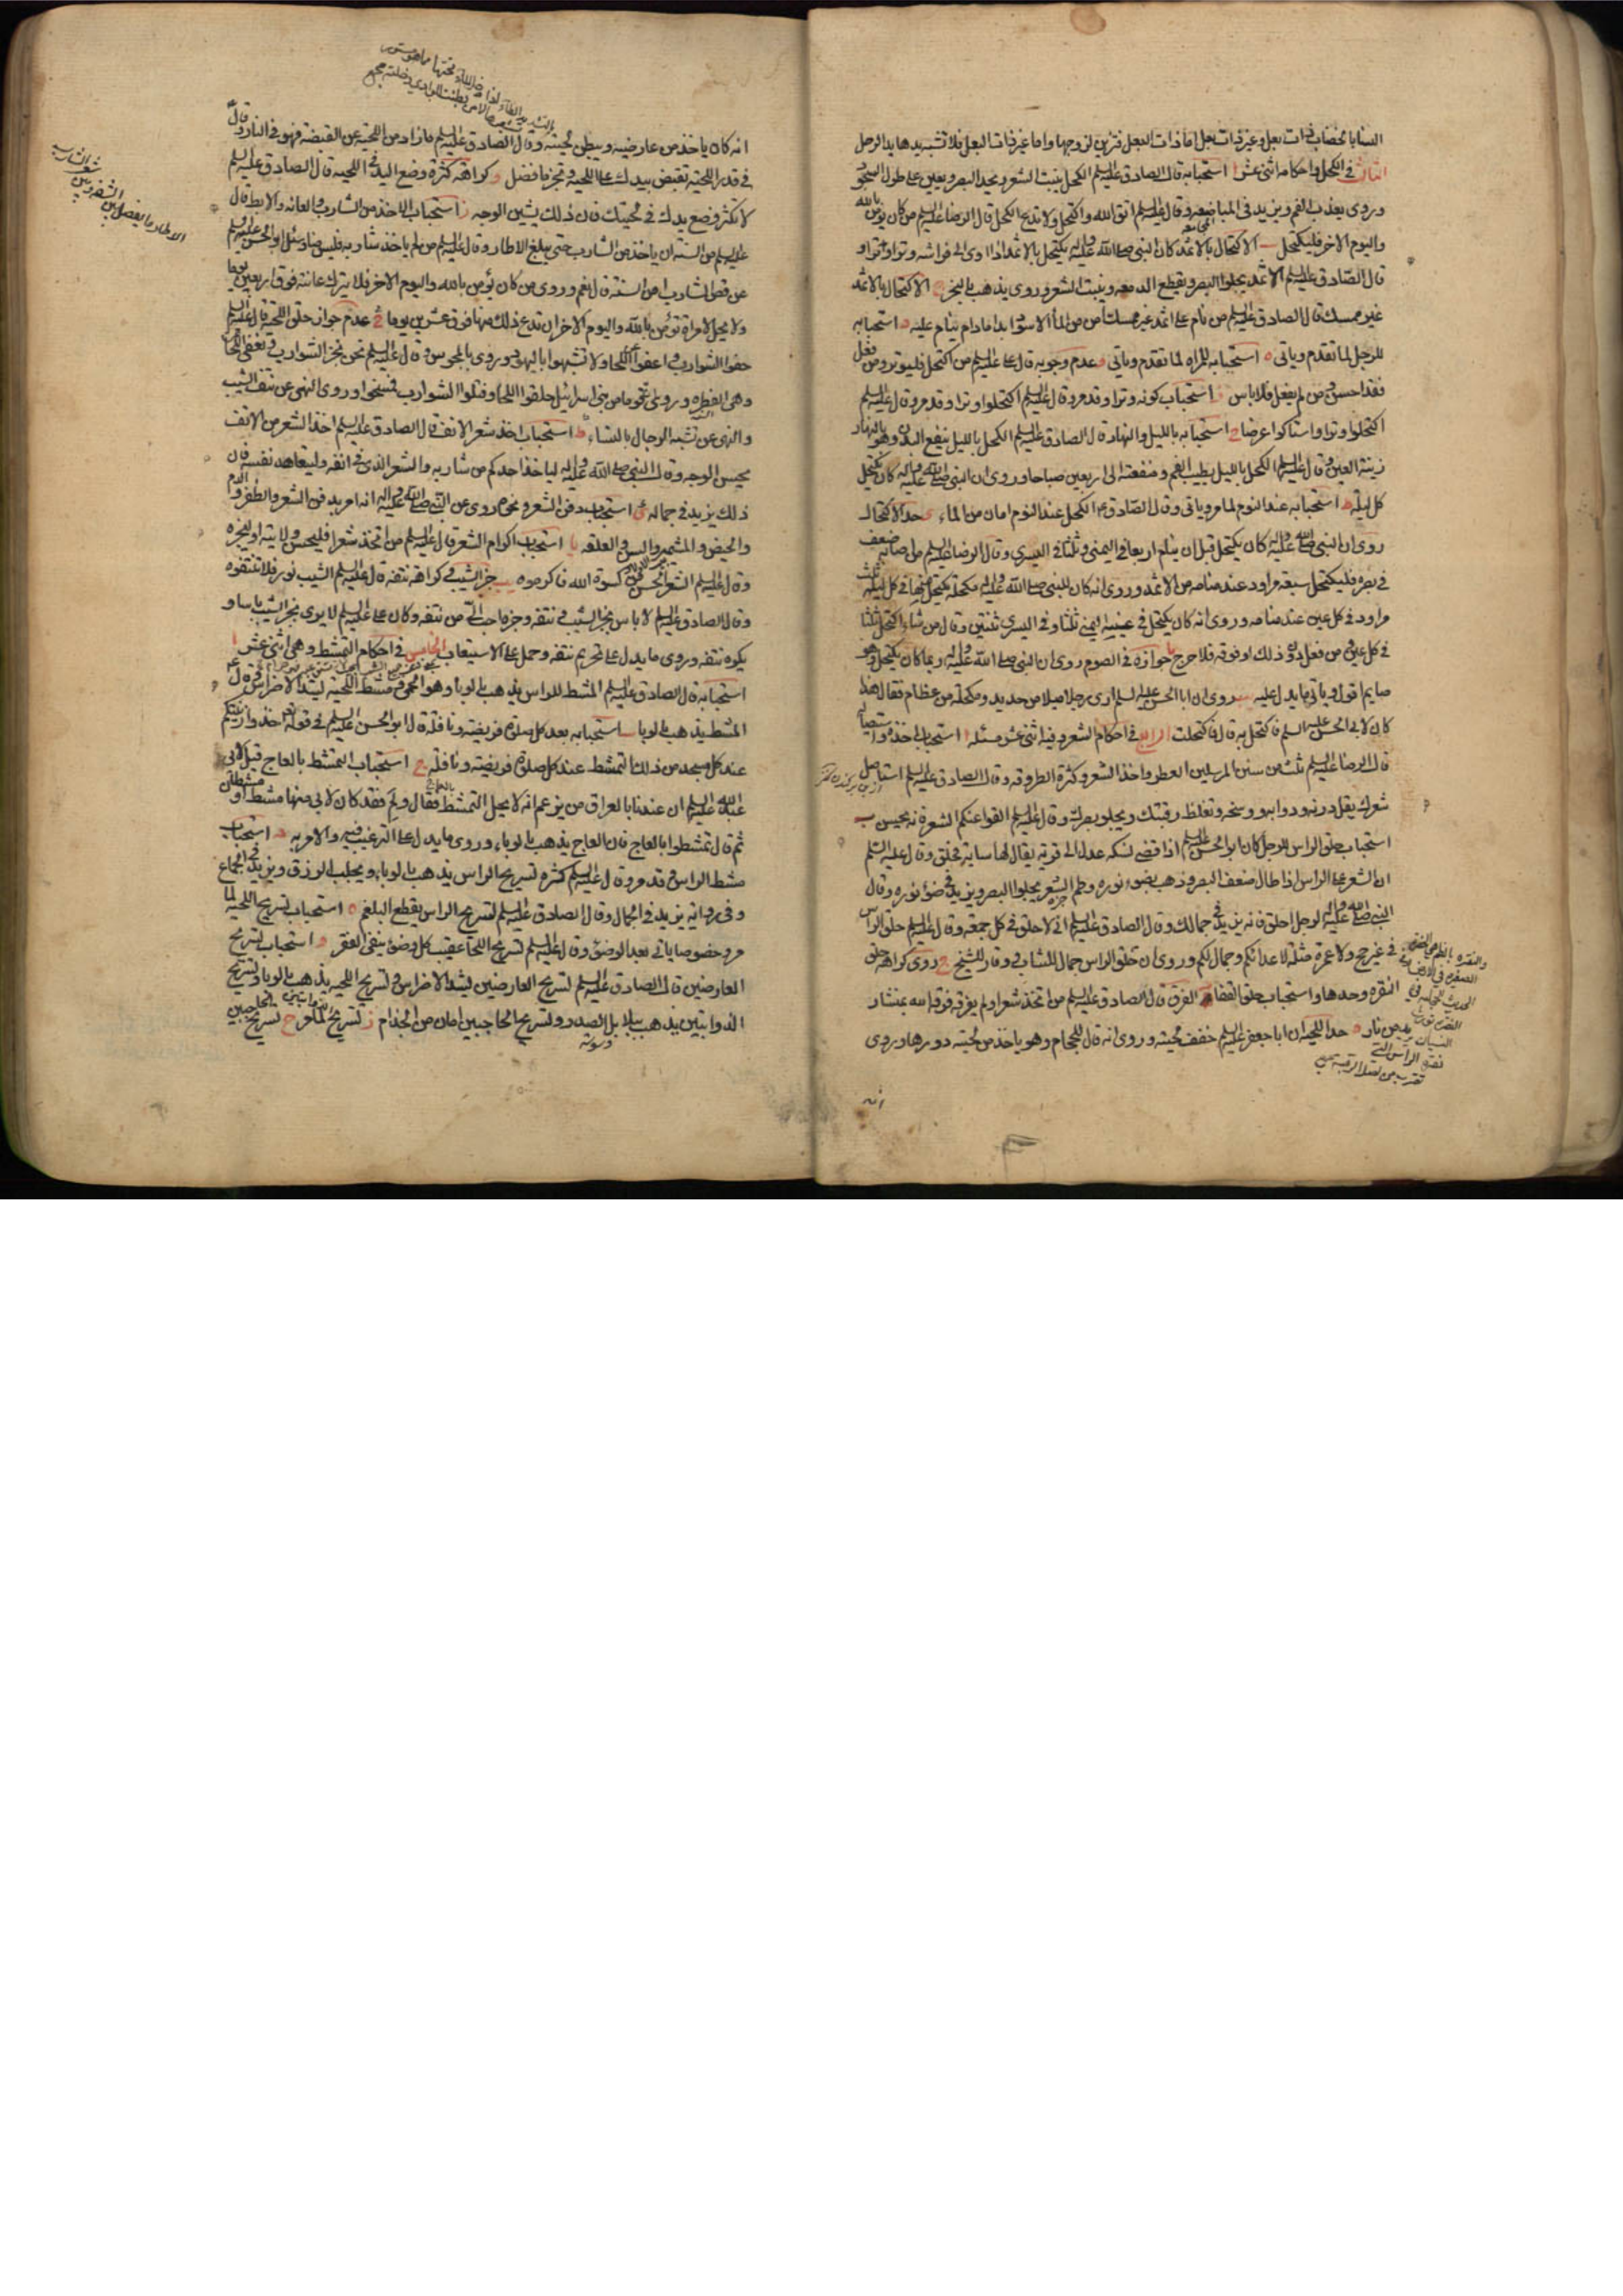 النساء بالخضاب ذات بعل وغير ذات بعل اما ذات البعل فتزين لزوجها واما غير ذات البعل فلا تشبه يدها يد الرجل
الثالث في الكحل واحكامه اثنى عشر ا استحبابه قال الصادق عليه السلم الكحل ينبت الشعر ويحد البصر ويعين على طول السجود
وروى يعذب الفم ويزيد في المباضعة وقال عليه السلم اتق الله واكتحل ولا تدع الكحل قال الرضا عليه السلم من كان يؤمن بالله
واليوم الاخر فليكتحل ب الاكتحال بالاثمد كان النبي صلى الله عليه واله يكتحل بالاثمد اذا اوى الى فراشه وترا وترا و
قال الصادق عليه السلم الاثمد يجلوا البصر ويقطع الدمعه وينبت الشعر وروى يذهب بالبخر ج الاكتحال بالاثمد
غير ممسك قال الصادق عليه السلم من نام على اثمد غير ممسك امن من الماء الاسود ابدا مادام ينام عليه د استحبابه
للرجل لما تقدم وياتى ه استحبابه للمراه لما تقدم وياتى و عدم وجوبه قال على عليه السلم من اكتحل فليوتر ومن فعل
فقد احسن ومن لم يفعل فلا باس ز استحباب كونه وترا وقد مر وقال عليه السلم اكتحلوا وترا وقد مر وقال عليه السلم
اكتحلوا وترا واستاكوا عرضا ح استحبابه بالليل والنهار قال الصادق عليه السلم الكحل بالليل ينفع البدن وهو بالنهار
زينة العين وقال عليه السلم الكحل بالليل يطيب الفم ومنفعته الى اربعين صباحا وروى ان النبي صلى الله عليه واله كان يكتحل
كل ليلة ط استحبابه عند النوم لما مر وياتى وقال الصادق ع الكحل عند النوم امان من الماء ى حد الاكتحال
روى ان النبي صلى الله عليه واله كان يكتحل قبل ان ينام اربعا في اليمنى وثلثا في اليسرى وقال الرضا عليه السلم من اصابه ضعف
في بصره فليكتحل سبعة مراود عند منامه من الاثمد وروى انه كان للنبي صلى الله عليه واله مكحلة يكتحل منها في كل ليلة ثلث
مراود في كل عين عند منامه وروى انه كان يكتحل في عينه اليمنى ثلثا وفي اليسرى ثنتين وقال من شاء اكتحل ثلثا
في كل عين ومن فعل دون ذلك او فوقه فلا حرج يا جوازه في الصوم روى ان النبي صلى الله عليه واله ربما كان يكتحل وهو
صايم اقول وياتى ما يدل عليه يب روى ان ابا الحسن عليه السلم ارى رجلا ميلا من حديد ومكحلة من عظام فقال هذا
كان لابي الحسن عليه السلم فاكتحل به قال فاكتحلت الرابع في احكام الشعر وفيه اثنى عشر مسئلة ا استحباب اخذه واستيصاله
قال الرضا عليه السلم ثلث من سنن المرسلين العطر واخذ الشعر وكثرة الطروقه وقال الصادق عليه السلم استاصل
شعرك يقل درنه ودوابه ووسخه وتغلظ رقبتك ويجلو بصرك وقال عليه السلم القوا عنكم الشعر فانه يحسن ب
استحباب حلق الراس للرجل كان ابو الحسن عليه السلم اذا قضى نسكه عدل الى قرية يقال لها ساية فحلق وقال عليه السلم
ان الشعر على الراس اذا طال ضعف البصر وذهب بضوء نوره وطم الشعر يجلوا البصر ويزيد في ضوء نوره وقال
النبي صلى الله عليه واله لرجل احلق فانه يزيد في جمالك وقال الصادق عليه السلم اني لاحلق في كل جمعة وقال عليه السلم حلق الراس
في غير حج ولا عمرة مثلة لاعدائكم وجمال لكم وروى ان حلق الراس جمال للشاب ووقار للشيخ ج روى كراهة حلق
النقره وحدها واستحباب حلق القفا د الفرق قال الصادق عليه السلم من اتخذ شعرا ولم يفرقه فرقه الله بمنشار
من نار ه حد اللحية ان ابا جعفر عليه السلم خفف لحيته وروى انه قال للحجام وهو ياخذ من لحيته دورها وروى
انه
انه كان ياخذ من عارضيه ويبطن لحيته وقال الصادق عليه السلم ما زاد من اللحية عن القبضة فهو في النار وقال
في قدر اللحية تقبض بيدك على اللحية وتجز ما فضل و كراهة كثرة وضع اليد في اللحية قال الصادق عليه السلم
لا تكثر وضع يدك في لحيتك فان ذلك يشين الوجه ز استحباب الاخذ من الشارب والعانه والابط قال
عليه السلم من السنة ان ياخذ من الشارب حتى يبلغ الاطار وقال عليه السلم من لم ياخذ شاربه فليس منا وسئل ابو الحسن عليه السلم
عن قص الشارب امن السنة قال نعم وروى من كان يؤمن بالله واليوم الاخر فلا يترك عانته فوق اربعين يوما
ولا يحل لامراة تؤمن بالله واليوم الاخر ان تدع ذلك منها فوق عشرين يوما ح عدم جواز حلق اللحية قال عليه السلم
حفوا الشوارب واعفوا اللحا ولا تشبهوا باليهود وروى بالمجوس وقال عليه السلم نحن نجز الشوارب ونعفى اللحا
وهى الفطره وروى ان قوما من بنى اسرائيل حلقوا اللحا وفتلوا الشوارب فمسخوا وروى النهى عن نتف الشيب
والنهى عن تشبه الرجال بالنساء ط استحباب اخذ شعر الانف قال الصادق عليه السلم اخذ الشعر من الانف
يحسن الوجه وقال النبي صلى الله عليه واله لياخذ احدكم من شاربه والشعر الذى في انفه وليتعاهد نفسه فان
ذلك يزيد في جماله ى استحباب دفن الشعر ونحوه روى عن النبي صلى الله عليه واله انه امر بدفن الشعر والظفر والدم
والحيض والمشيمه والسن والعلقه يا استحباب اكرام الشعر قال عليه السلم من اتخذ شعرا فليحسن ولايته او ليجزه
وقال عليه السلم الشعر الحسن من كسوة الله فاكرموه يب جز الشيب وكراهة نتفه قال عليه السلم الشيب نور فلا تنتفوه
وقال الصادق عليه السلم لا باس بجز الشيب ونتفه وجزه احب الى من نتفه وكان على عليه السلم لا يرى بجز الشيب باسا و
يكره نتفه وروى ما يدل على تحريم نتفه وحمل على الاستيعاب الخامس في احكام التمشط وهى اثنى عشر ا
استحبابه قال الصادق عليه السلم المشط للراس يذهب بالوبا وهو الحمى ومشط اللحية يشد الاضراس وقال ع
المشط يذهب بالوبا ب استحبابه بعد كل صلوة فريضة ونافلة قال ابو الحسن عليه السلم في قوله تع خذوا زينتكم
عند كل مسجد من ذلك التمشط عند كل صلوة فريضة ونافلة ج استحباب التمشط بالعاج قيل لابي
عبد الله عليه السلم ان عندنا بالعراق من يزعم انه لا يحل التمشط بالعاج فقال ولم فقد كان لابى منها مشط او مشطان
ثم قال تمشطوا بالعاج فان العاج يذهب بالوباء وروى ما يدل على الترغيب فيه والامر به د استحباب
مشط الراس قد مر وقال عليه السلم كثرة تسريح الراس يذهب بالوباء ويجلب الرزق ويزيد في الجماع
وفي رواية يزيد في الجمال وقال الصادق عليه السلم تسريح الراس يقطع البلغم ه استحباب تسريح اللحية لما
مر وخصوصا ياتى بعد الوضوء وقال عليه السلم تسريح اللحا عقيب كل وضوء ينفى الفقر و استحباب تسريح
العارضين قال الصادق عليه السلم تسريح العارضين يشد الاضراس وتسريح اللحيه يذهب بالوبا وتسريح
الذوابتين يذهب ببلابل الصدر وتسريح الحاجبين امان من الجذام ز تسريح الذوابتين لما مر ح تسريح الحاجبين
الاطار ما يفصل بين الشفه وبين شعر الشارب